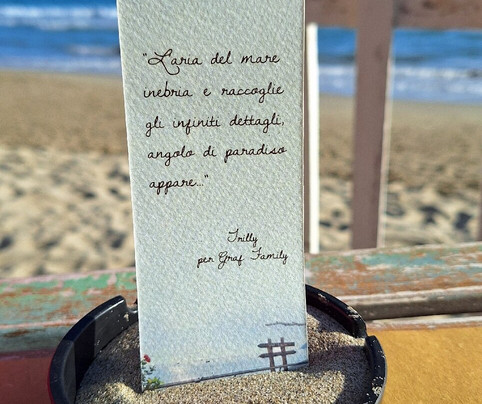 "L'aria del mare
inebria e raccoglie
gli infiniti dettagli,
angolo di paradiso
appare..."
Trilly
per Graf Family